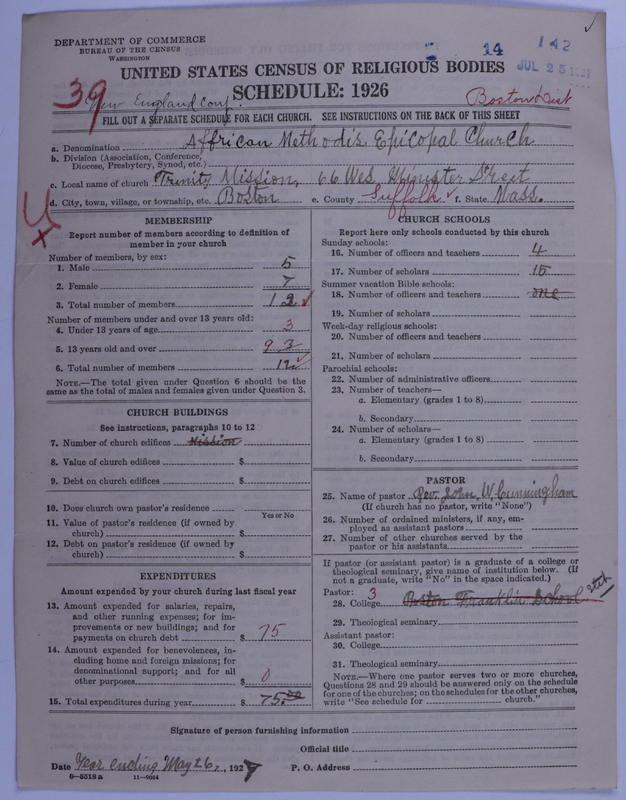 DEPARTMENT OF COMMERCE
BUREAU OF THE CENSUS
WASHINGTON
14
142
JUL 25
UNITED STATES CENSUS OF RELIGIOUS BODIES
SCHEDULE: 1926
39
New England Conf.
Boston Dist
FILL OUT A SEPARATE SCHEDULE FOR EACH CHURCH. SEE INSTRUCTIONS ON THE BACK OF THIS SHEET
a. Denomination Affrican Methodis Epicopal Church
b. Division (Association, Conference, Diocese, Presbytery, Synod, etc.)
c. Local name of church Trinity Mission, 66 Wes Hminster Street
d. City, town, village, or township, etc. Boston e. County Suffolk f. State Mass.
MEMBERSHIP
Report number of members according to definition of member in your church
Number of members, by sex:
1. Male 5
2. Female 7
3. Total number of members 12
Number of members under and over 13 years old:
4. Under 13 years of age 3
5. 13 years old and over 9
6. Total number of members 12
NOTE.—The total given under Question 6 should be the same as the total of males and females given under Question 3.
CHURCH BUILDINGS
See instructions, paragraphs 10 to 12
7. Number of church edifices Mission
8. Value of church edifices $
9. Debt on church edifices $
10. Does church own pastor's residence
Yes or No
11. Value of pastor's residence (if owned by church) $
12. Debt on pastor's residence (if owned by church) $
EXPENDITURES
Amount expended by your church during last fiscal year
13. Amount expended for salaries, repairs, and other running expenses; for improvements or new buildings; and for payments on church debt $ 75
14. Amount expended for benevolences, including home and foreign missions; for denominational support; and for all other purposes $ 0
15. Total expenditures during year $ 75.00
CHURCH SCHOOLS
Report here only schools conducted by this church
Sunday schools:
16. Number of officers and teachers 4
17. Number of scholars 15
Summer vacation Bible schools:
18. Number of officers and teachers one
19. Number of scholars
Week-day religious schools:
20. Number of officers and teachers
21. Number of scholars
Parochial schools:
22. Number of administrative officers
23. Number of teachers—
a. Elementary (grades 1 to 8)
b. Secondary
24. Number of scholars—
a. Elementary (grades 1 to 8)
b. Secondary
PASTOR
25. Name of pastor Rev. John W. Cunningham
(If church has no pastor, write "None")
26. Number of ordained ministers, if any, employed as assistant pastors
27. Number of other churches served by the pastor or his assistants
If pastor (or assistant pastor) is a graduate of a college or theological seminary, give name of institution below. (If not a graduate, write "No" in the space indicated.)
Pastor: 3
28. College Boston Franklin School
29. Theological seminary
Assistant pastor:
30. College
31. Theological seminary
NOTE.—Where one pastor serves two or more churches, Questions 28 and 29 should be answered only on the schedule for one of the churches; on the schedules for the other churches, write "See schedule for church."
Signature of person furnishing information
Official title
Date Year ending May 26, 1927 P. O. Address
6-5518a 11-9064